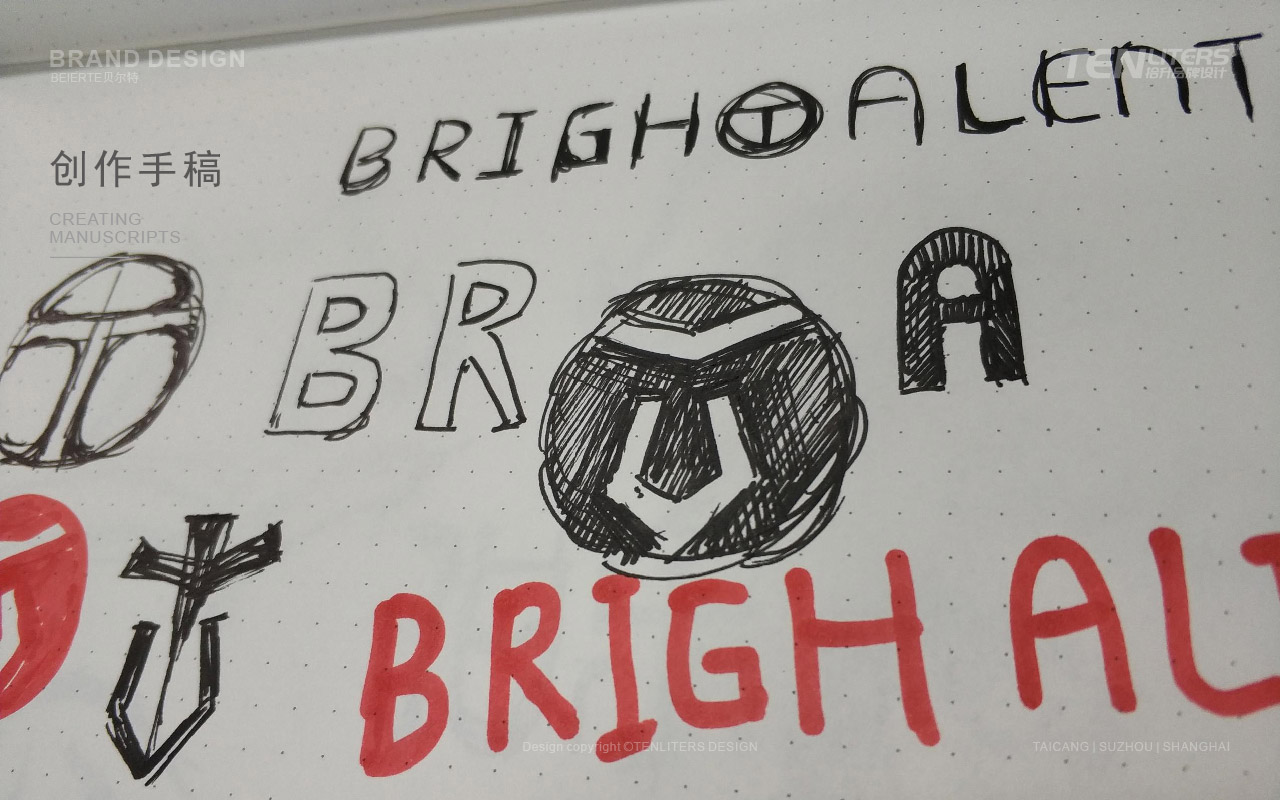 BRAND DESIGN
BEIERTE贝尔特
TENLITERS
倍升品牌设计
BRIGHTALENT
创作手稿
CREATING
MANUSCRIPTS
T BR T A
BRIGH AL
Design copyright ©TENLITERS DESIGN
TAICANG | SUZHOU | SHANGHAI